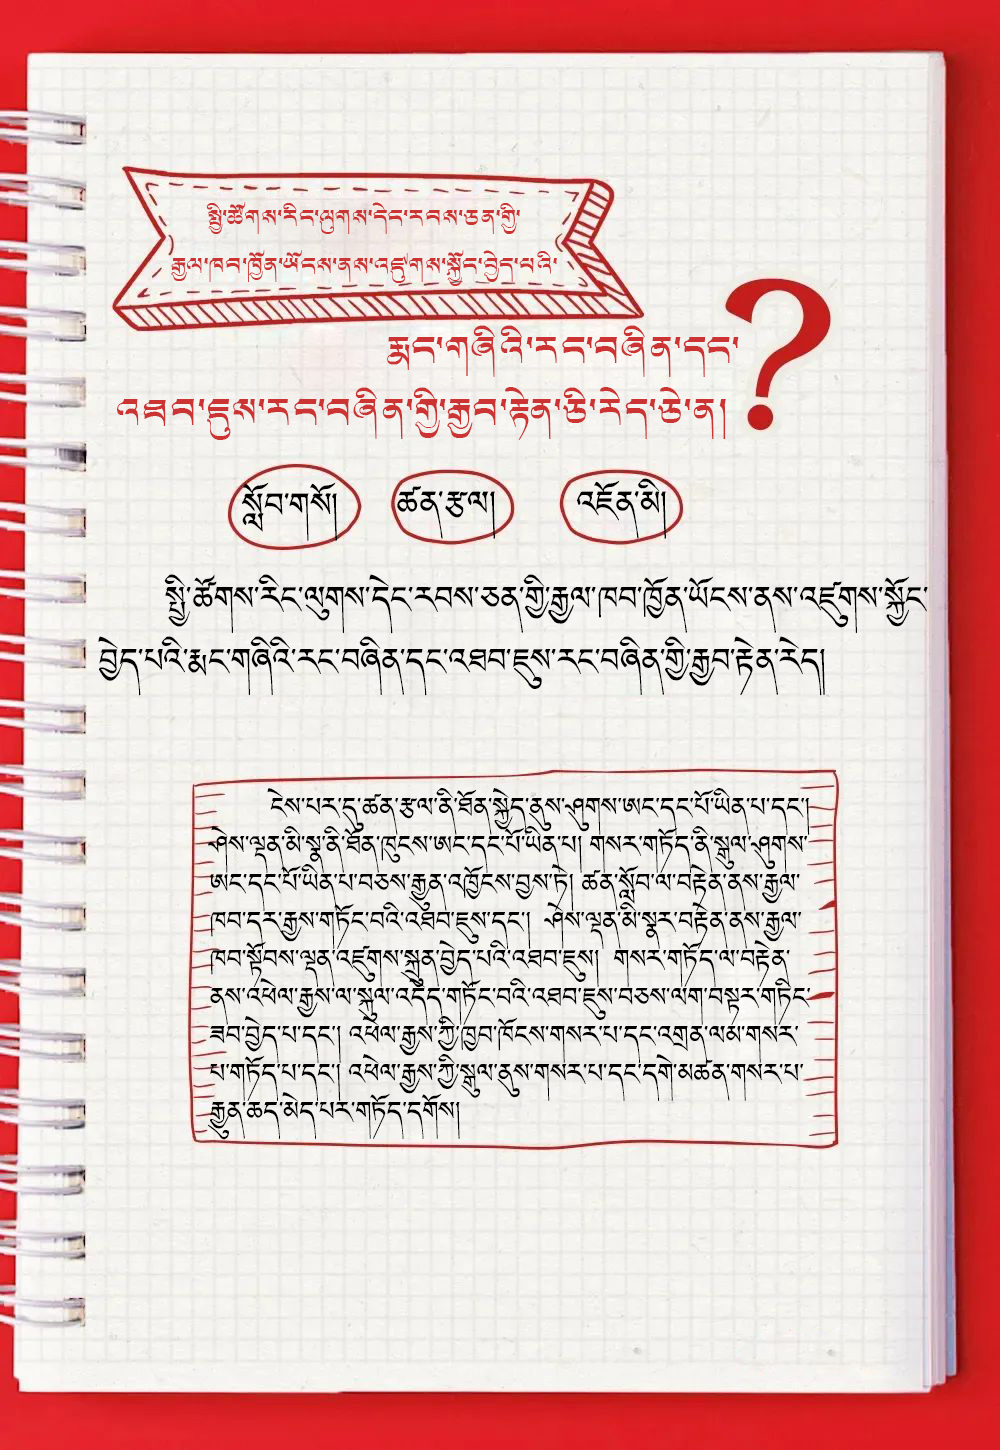 སྤྱི་ཚོགས་རིང་ལུགས་དེང་རབས་ཅན་གྱི་
རྒྱལ་ཁབ་ཁྱོན་ཡོངས་ནས་འཛུགས་སྐྱོང་བྱེད་པའི་
རྨང་གཞིའི་རང་བཞིན་དང་
འཐབ་ཇུས་རང་བཞིན་གྱི་རྒྱབ་རྟེན་ཅི་རེད་ཅེ་ན།
?
སློབ་གསོ།
ཚན་རྩལ།
འཇོན་མི།
སྤྱི་ཚོགས་རིང་ལུགས་དེང་རབས་ཅན་གྱི་རྒྱལ་ཁབ་ཁྱོན་ཡོངས་ནས་འཛུགས་སྐྱོང་
བྱེད་པའི་རྨང་གཞིའི་རང་བཞིན་དང་འཐབ་ཇུས་རང་བཞིན་གྱི་རྒྱབ་རྟེན་རེད།
ངེས་པར་དུ་ཚན་རྩལ་ནི་ཐོན་སྐྱེད་ནུས་ཤུགས་ཨང་དང་པོ་ཡིན་པ་དང་།
ཤེས་ལྡན་མི་སྣ་ནི་ཐོན་ཁུངས་ཨང་དང་པོ་ཡིན་པ། གསར་གཏོད་ནི་སྒུལ་ཤུགས་
ཨང་དང་པོ་ཡིན་པ་བཅས་རྒྱུན་འཁྱོངས་བྱས་ཏེ། ཚན་སློབ་ལ་བརྟེན་ནས་རྒྱལ་
ཁབ་དར་རྒྱས་གཏོང་བའི་འཐབ་ཇུས་དང་། ཤེས་ལྡན་མི་སྣར་བརྟེན་ནས་རྒྱལ་
ཁབ་སྟོབས་ལྡན་འཛུགས་སྐྲུན་བྱེད་པའི་འཐབ་ཇུས། གསར་གཏོད་ལ་བརྟེན་
ནས་འཕེལ་རྒྱས་ལ་སྐུལ་འདེད་གཏོང་བའི་འཐབ་ཇུས་བཅས་ལག་བསྟར་གཏིང་
ཟབ་བྱེད་པ་དང་། འཕེལ་རྒྱས་ཀྱི་ཁྱབ་ཁོངས་གསར་པ་དང་འགྲན་ལམ་གསར་
པ་གཏོད་པ་དང་། འཕེལ་རྒྱས་ཀྱི་སྒུལ་ནུས་གསར་པ་དང་དགེ་མཚན་གསར་པ་
རྒྱུན་ཆད་མེད་པར་གཏོད་དགོས།